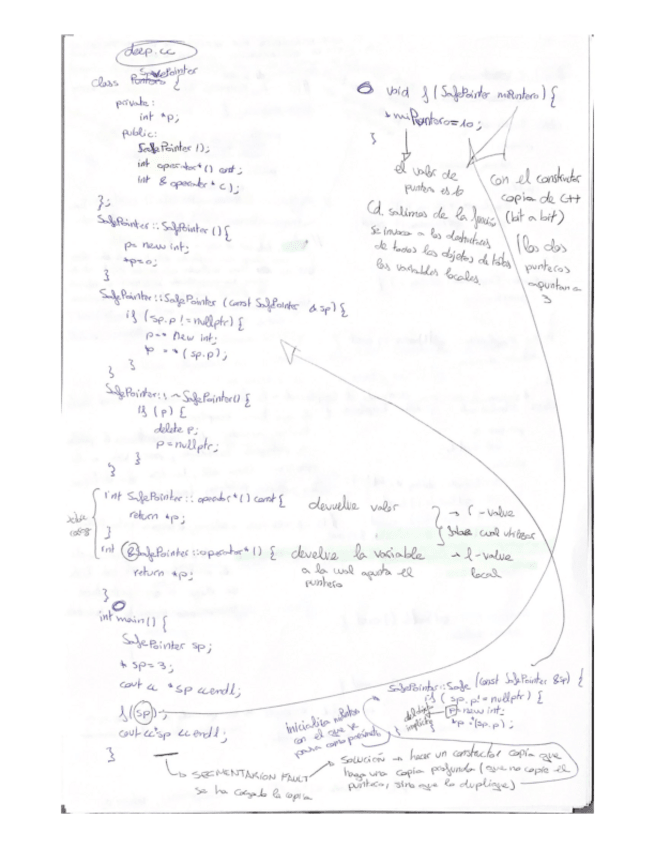 deep.cc
SafePointer
class {
private:
int *p;
public:
SafePointer();
int operator*() const;
int & operator*();
};
SafePointer::SafePointer(){
p= new int;
*p=0;
}
SafePointer::SafePointer (const SafePointer & sp){
if (sp.p != nullptr) {
p= new int;
*p = *(sp.p);
}
}
SafePointer::~SafePointer(){
if (p) {
delete p;
p=nullptr;
}
}
int SafePointer::operator*() const{
return *p;
}
int &SafePointer::operator*() {
return *p;
}
devuelve valor
devuelve la variable
a la cual apunta el
puntero
→ r-value
sabe cual utilizar
→ l-value
local
int main() {
SafePointer sp;
*sp=3;
cout << *sp <<endl;
f(sp);
cout <<*sp <<endl;
}
→ SEGMENTATION FAULT
se ha cargado la copia
void f(SafePointer miPuntero){
*miPuntero=10;
}
el valor de
puntero es 10
Cd. salimos de la función
se invoca a los destructores
de todos los objetos de todas
las variables locales.
con el constructor
copia de C++
(bit a bit)
(los dos
punteros
apuntan a
3
SafePointer::Safe (const SafePointer &sp) {
if ( sp.p!=nullptr) {
p=new int;
*p=*(sp.p);
}
}
inicializa
con el que se
pasa como parámetro
implícito
SOLUCIÓN → hacer un constructor copia que
haga una copia profunda (que no copie el
puntero, sino que lo duplique)